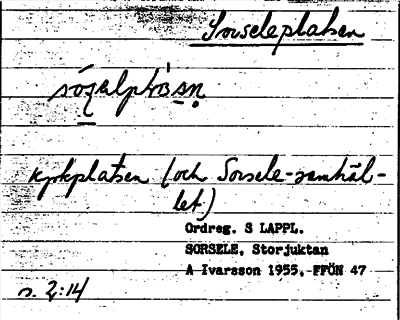 Sorseleplatsen
kyrkplatsen (och Sorsele-samhäl-
let)
Ordreg. S LAPPL.
SORSELE, Storjuktan
A Ivarsson 1955, FFÖN 47
s. 2:14